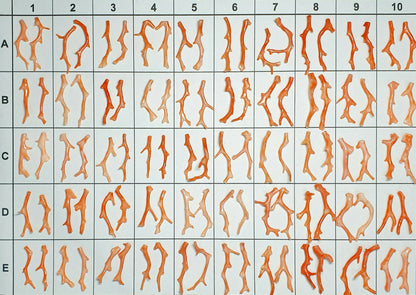 1 2 3 4 5 6 7 8 9 10
A
B
C
D
E